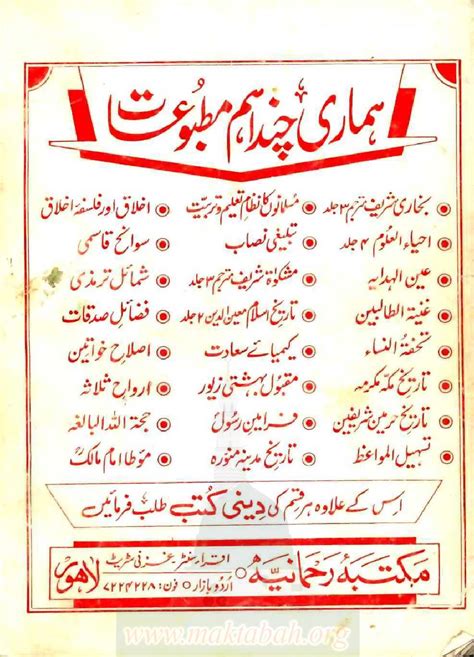 ہماری چند اہم مطبوعات
بخاری شریف مترجم ۳ جلد
احیاء العلوم ۴ جلد
عین الہدایہ
غنیۃ الطالبین
تحفۃ النساء
تاریخ مکہ مکرمہ
تاریخ حرمین شریفین
تسہیل المواعظ
مسلمانوں کا نظام تعلیم و تربیت
تبلیغی نصاب
مشکوٰۃ شریف مترجم ۳ جلد
تاریخ اسلام معین الدین ۲ جلد
کیمیائے سعادت
مقبول بہشتی زیور
فرامین رسولؐ
تاریخ مدینہ منورہ
اخلاق اور فلسفۂ اخلاق
سوانح قاسمی
شمائل ترمذی
فضائل صدقات
اصلاح خواتین
ارواح ثلاثہ
حجۃ اللہ البالغہ
موطا امام مالکؒ
اس کے علاوہ ہر قسم کی دینی کتب طلب فرمائیں
مکتبۂ رحمانیہ
اقراء سنٹر غزنی سٹریٹ
اردو بازار فون: ۷۲۲۴۲۲۸
لاہور
www.maktabah.org